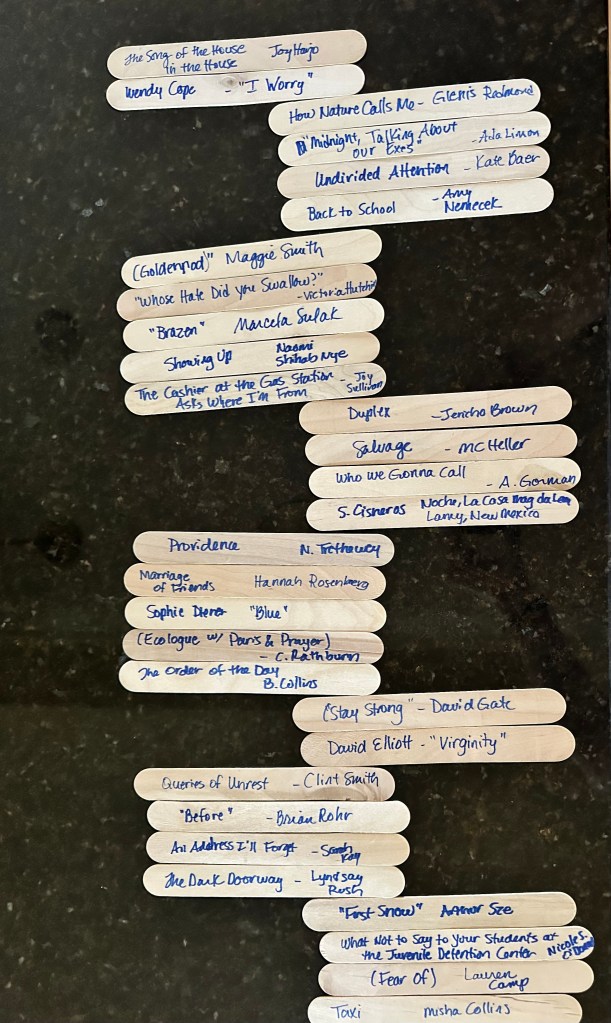 The Song of the House Joy Harjo
in the House
Wendy Cope - "I Worry"
How Nature Calls Me - Glenis Redmond
"Midnight, Talking About
our Exes" - Ada Limon
Undivided Attention - Kate Baer
Back to School - Amy
Nemecek
(Goldenrod)" Maggie Smith
"Whose Hate Did you Swallow?"
- Victoria Hutchin
"Brazen" Marcela Sulak
Showing Up Naomi
Shihab Nye
The Cashier at the Gas Station - Joy
Asks Where I'm From Sullivan
Duplex - Jericho Brown
Salvage - MC Heller
Who we Gonna Call
- A. Gorman
S. Cisneros Noche, La Casa
Lamy, New Mexico
Providence N. Trethewey
Marriage
of Friends Hannah Rosenberg
Sophie Diener "Blue"
(Ecologue w/ Paris & Prayer)
- C. Rathburn
The Order of the Day
B. Collins
"Stay Strong" - David Gate
David Elliott - "Virginity"
Queries of Unrest - Clint Smith
"Before" - Brian Rohr
An Address I'll Forget - Sarah
Kay
The Dark Doorway - Lyndsay
Rush
"First Snow" Arthur Sze
What Not to Say to Your Students at
the Juvenile Detention Center Nicole S.
(Fear Of) Lauren
Camp
Taxi Misha Collins